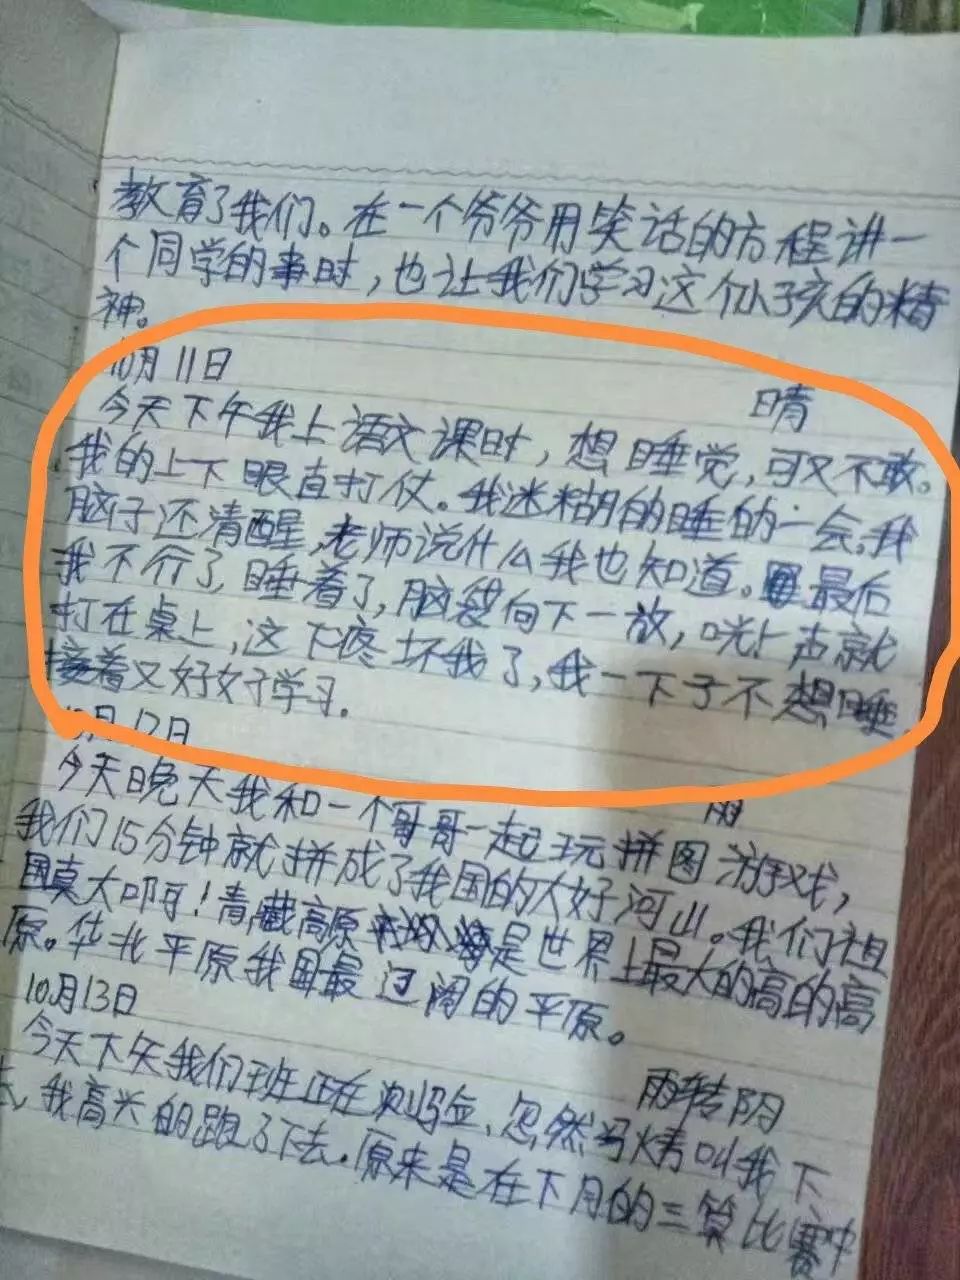 教育了我们。在一个爷爷用笑话的方程讲一
个同学的事时，也让我们学习这个小孩的精
神。
10月11日
晴
今天下午我上语文课时，想睡觉，可又不敢。
我的上下眼直打仗。我迷糊的睡的一会，我
脑子还清醒，老师说什么我也知道。最后
我不行了，睡着了，脑袋向下一放，咣一声就
打在桌上，这下疼坏我了，我一下子不想睡
接着又好好学习。
月12日
雨
今天晚天我和一个哥哥一起玩拼图游戏，
我们15分钟就拼成了我国的大好河山。我们祖
国真大啊！青藏高原是世界上最大的高的高
原。华北平原我国最辽阔的平原。
10月13日
雨转阴
今天下午我们班正在测验、忽然马倩叫我下
去、我高兴的跑了下去。原来是在下月的三算比赛中